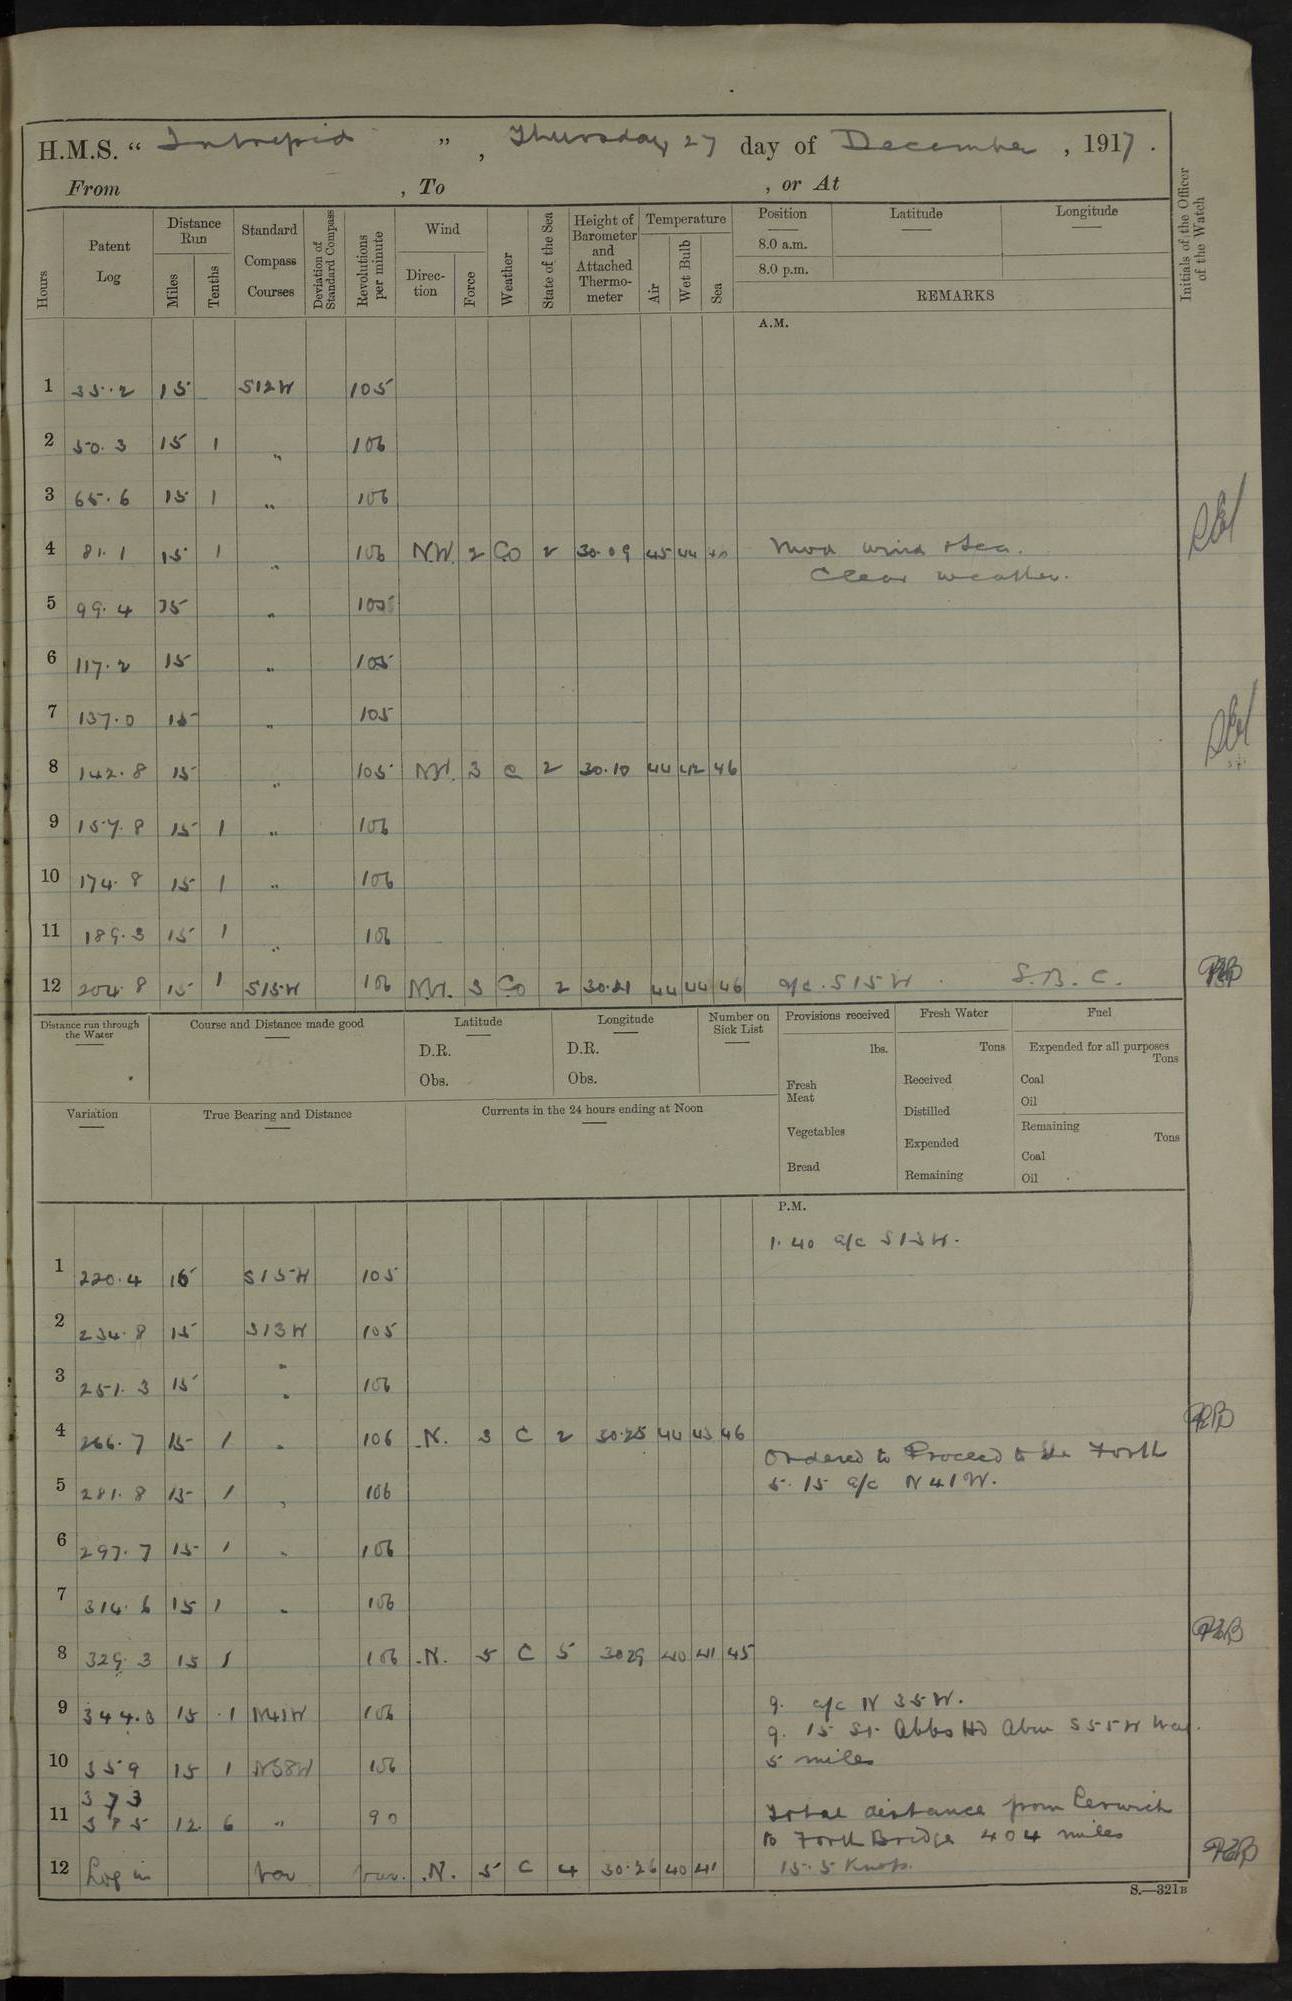 H.M.S. “ Intrepid ” , Thursday 27 day of December , 1917 .
From , To , or At
Hours Patent Log Distance Run Miles Tenths Standard Compass Courses Deviation of Standard Compass Revolutions per minute Wind Direction Force Weather State of the Sea Height of Barometer and Attached Thermometer Temperature Air Wet Bulb Sea Position Latitude Longitude Initials of the Officer of the Watch
8.0 a.m.
8.0 p.m.
REMARKS
A.M.
1 35.2 15 S12W 105
2 50.3 15 1 „ 106
3 65.6 15 1 „ 106
4 81.1 15 1 „ 106 N.W. 2 Co 2 30.09 45 44 Mod wind & Sea.
Clear weather.
5 99.4 15 „ 105
6 117.2 15 „ 105
7 137.0 15 „ 105
8 142.8 15 „ 105 NW. 3 C 2 30.10 44 42 46
9 157.8 15 1 „ 106
10 174.8 15 1 „ 106
11 189.3 15 1 „ 106
12 204.8 15 1 S15W 106 NW. 3 Co 2 30.21 44 44 46 a/c. S15W. S.B.C.
Distance run through the Water Course and Distance made good Latitude Longitude Number on Sick List Provisions received Fresh Water Fuel
D.R. D.R. lbs. Tons Expended for all purposes Tons
Obs. Obs. Fresh Meat Received Coal
Oil
Variation True Bearing and Distance Currents in the 24 hours ending at Noon Distilled Remaining Tons
Vegetables Expended Coal
Bread Remaining Oil
P.M.
1.40 a/c S13W.
1 220.4 15 S15W 105
2 234.8 15 S13W 105
3 251.3 15 „ 106
4 266.7 15 1 „ 106 N. 3 C 2 30.25 44 43 46
Ordered to Proceed to the Forth
5 281.8 15 1 „ 106 5.15 a/c N41W.
6 297.7 15 1 „ 106
7 314.6 15 1 „ 106
8 329.3 15 1 106 N. 5 C 5 3029 40 41 45
9 344.3 15 .1 N41W 106 9. a/c N35W.
9.15 St Abbs Hd Abm S55W Mag.
10 359 15 1 N38W 106 5 miles
373
11 385 12 6 „ 90 Total distance from Lerwick
to Forth Bridge 404 miles
12 Log in var var. N. 5 C 4 30.26 40 41 15.5 Knots.
S.—321B